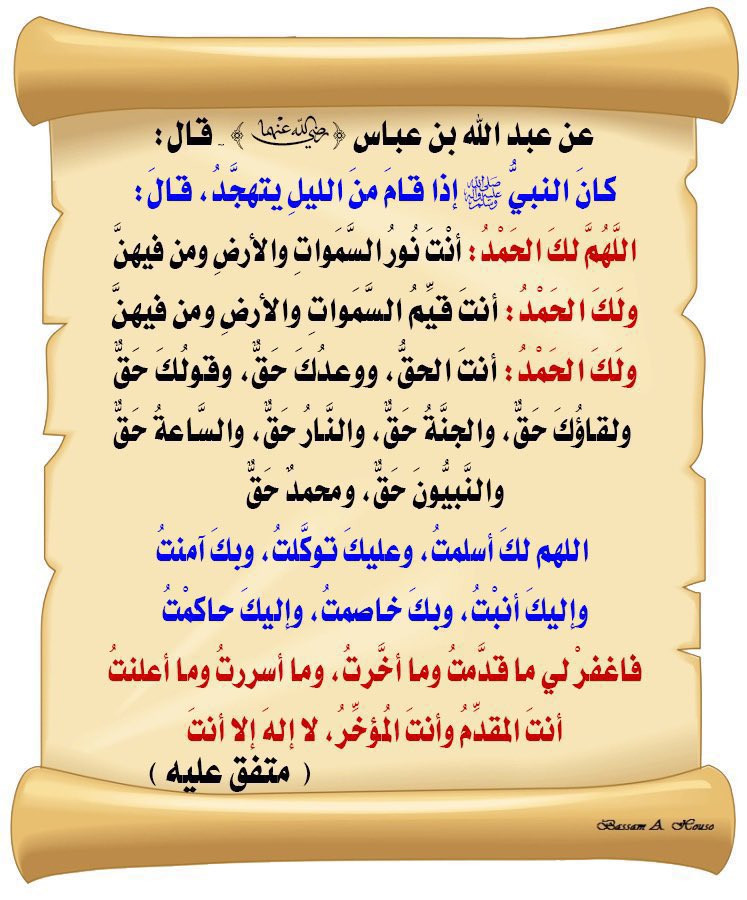 عن عبد الله بن عباس ﴿رضي الله عنهما﴾ - قال:
كانَ النبيُّ ﷺ إذا قامَ منَ الليلِ يتهجَّدُ، قالَ:
اللَّهُمَّ لكَ الحَمْدُ: أنْتَ نُورُ السَّمَواتِ والأرضِ ومن فيهنَّ
ولَكَ الحَمْدُ: أنتَ قيِّمُ السَّمَواتِ والأرضِ ومن فيهنَّ
ولَكَ الحَمْدُ: أنتَ الحقُّ، ووعدُكَ حَقٌّ، وقولُكَ حَقٌّ
ولقاؤُكَ حَقٌّ، والجنَّةُ حَقٌّ، والنَّارُ حَقٌّ، والسَّاعةُ حَقٌّ
والنَّبيُّونَ حَقٌّ، ومحمدٌ حَقٌّ
اللهم لكَ أسلمتُ، وعليكَ توكَّلتُ، وبكَ آمنتُ
وإليكَ أنبْتُ، وبكَ خاصمتُ، وإليكَ حاكمْتُ
فاغفرْ لي ما قدَّمتُ وما أخَّرتُ، وما أسررتُ وما أعلنتُ
أنتَ المقدِّمُ وأنتَ المُؤخِّرُ، لا إلهَ إلا أنتَ
( متفق عليه )
Bassam A. Houso